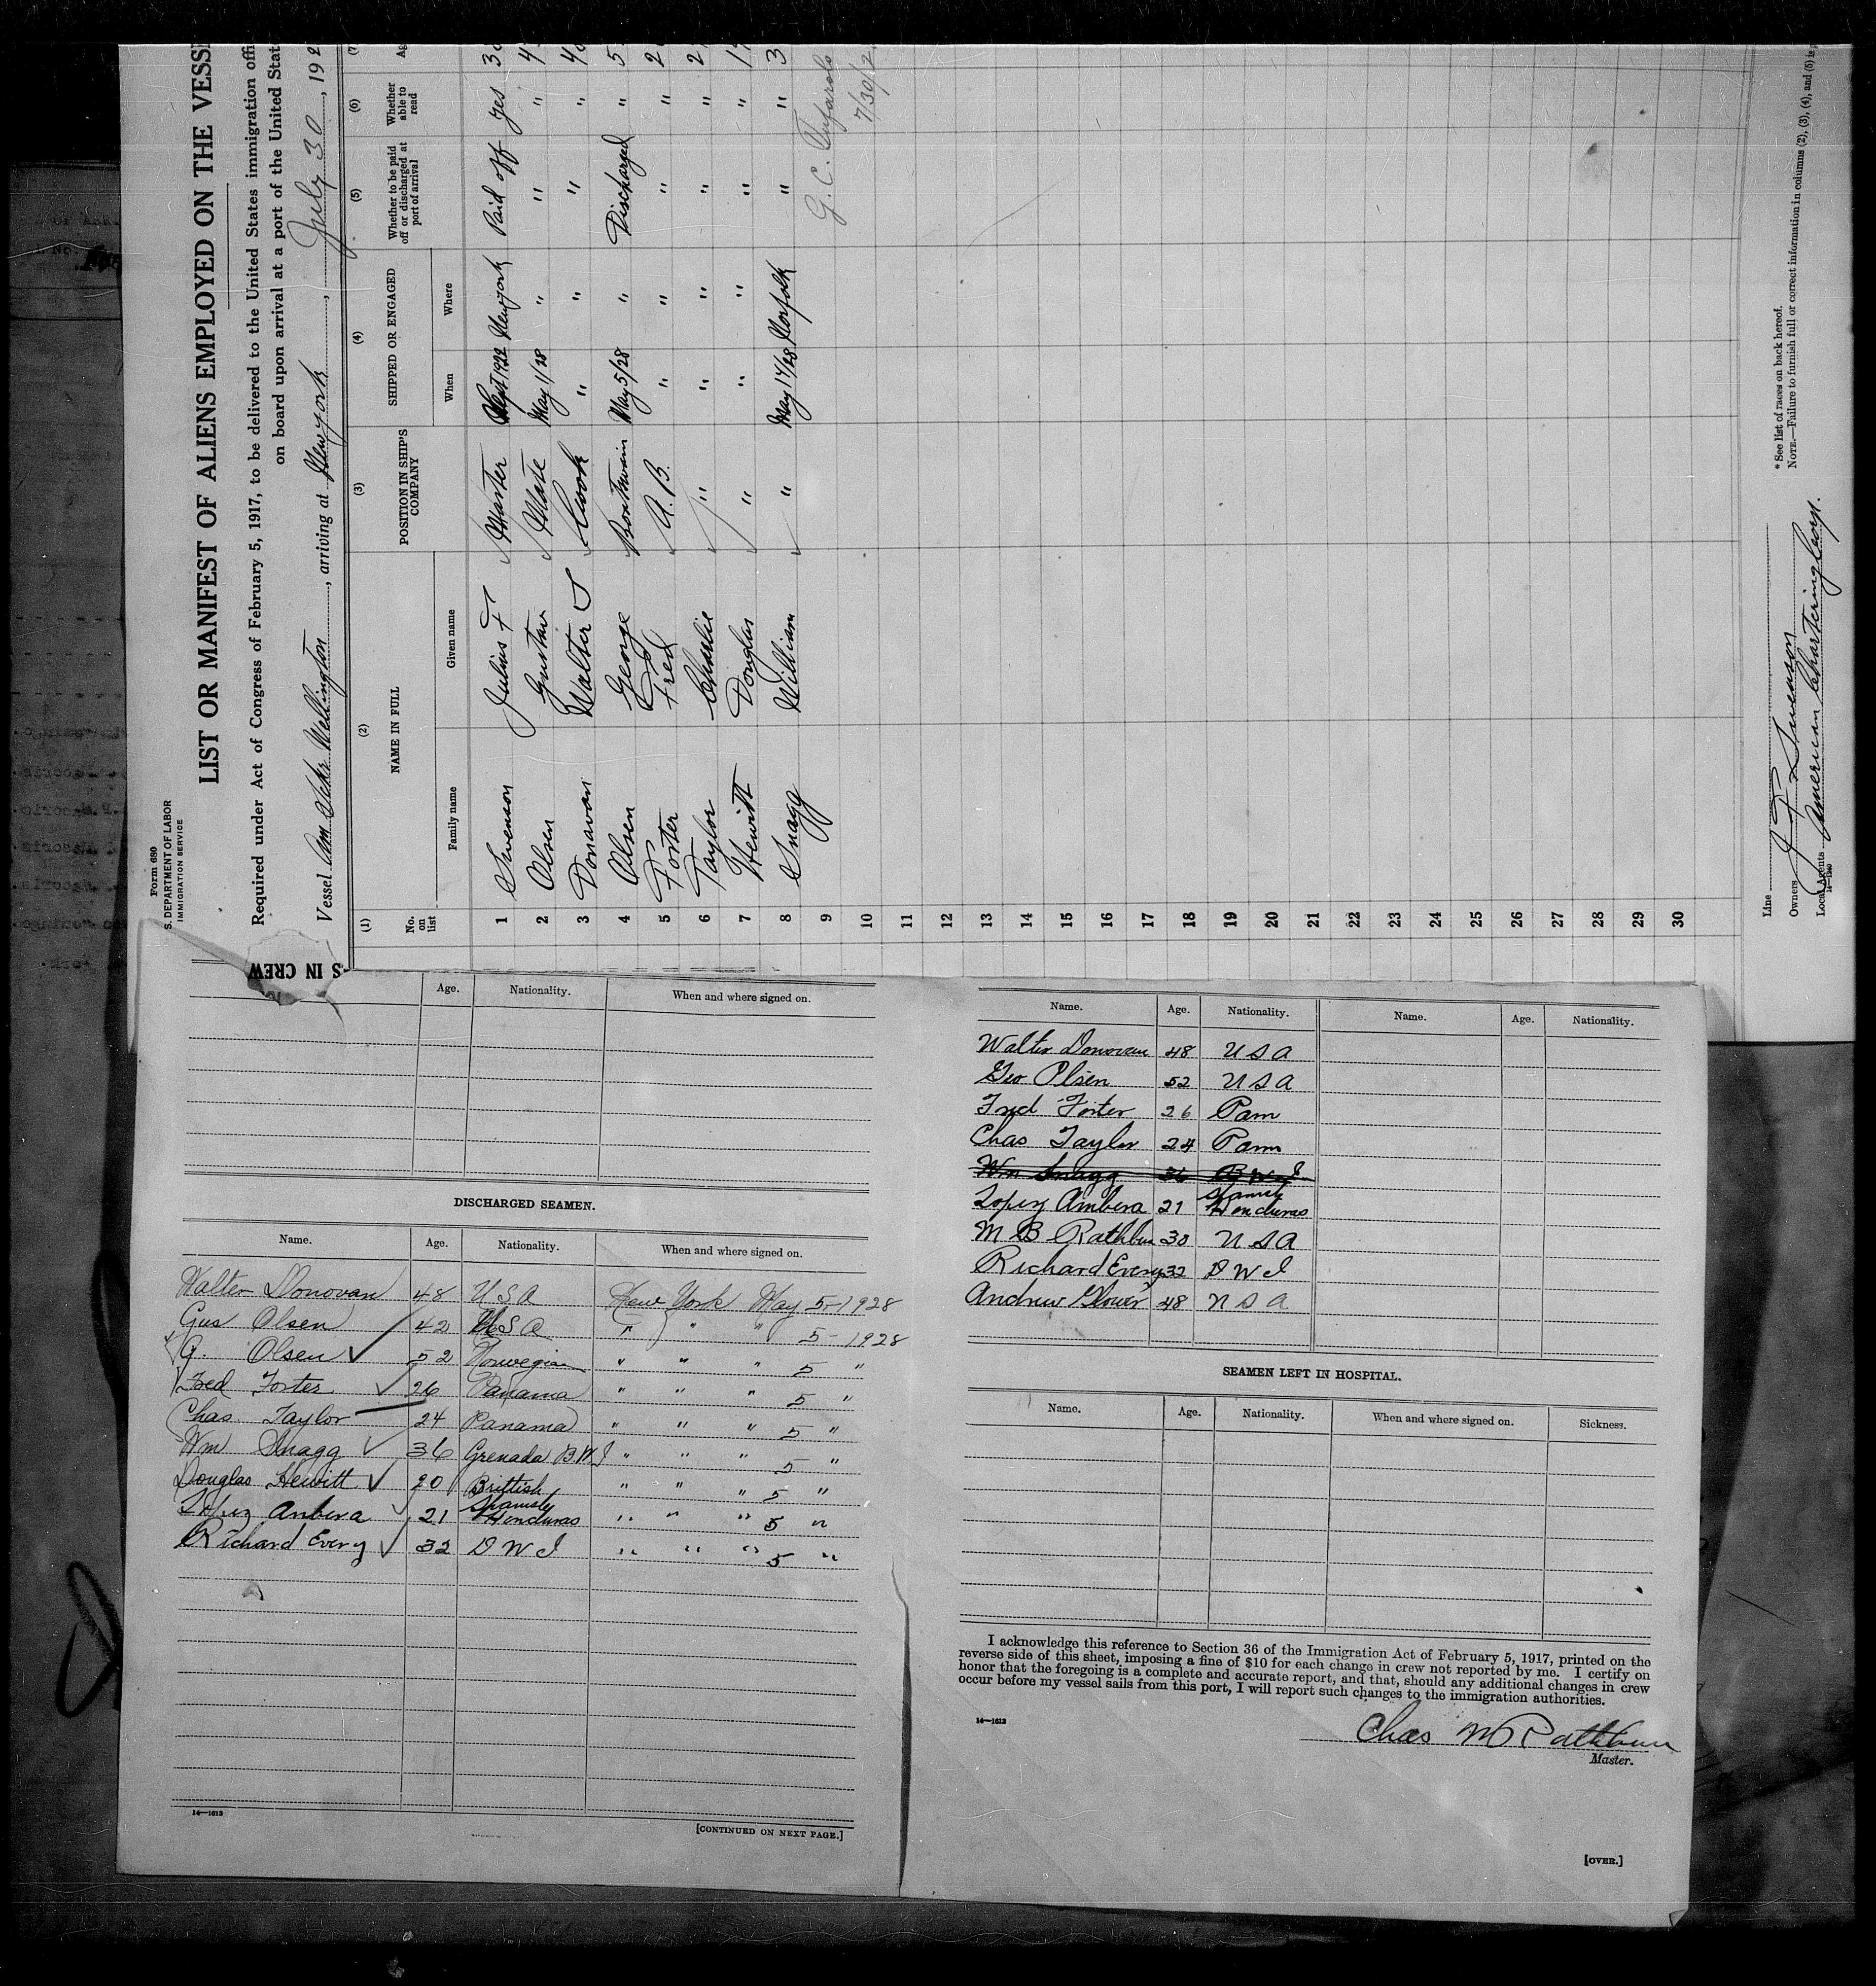 Form 680
S. DEPARTMENT OF LABOR
IMMIGRATION SERVICE
LIST OR MANIFEST OF ALIENS EMPLOYED ON THE VESSE
Required under Act of Congress of February 5, 1917, to be delivered to the United States immigration offi
on board upon arrival at a port of the United Stat
Vessel Am Schr Wellington, arriving at New york, July 30, 192
(1) (2) (3) (4) (5) (6) (7
No. on list NAME IN FULL POSITION IN SHIP'S COMPANY SHIPPED OR ENGAGED Whether to be paid off or discharged at port of arrival Whether able to read Ag
Family name Given name When Where
1 Swenson Julius F Master Sept 1922 New york Paid off yes 3
2 Olsen Gustav Mate May 1/28 " " " 4
3 Donavan Walter S Cook " " " " 4
4 Olsen George Boatswain May 5/28 " Discharged " 5
5 Forster Fred A.B. " " " " 2
6 Taylor Charlie " " " " " 2
7 Hewitt Douglas " " " " " 1
8 Snagg William " May 17/28 Norfolk " " 3
9 G. C.
10 7/30/2
11
12
13
14
15
16
17
18
19
20
21
22
23
24
25
26
27
28
29
30
Line
Owners J F Swenson
Local Agents American Chartering Corp.
14—1240
* See list of races on back hereof.
NOTE.—Failure to furnish full or correct information in columns (2), (3), (4), and (5) is p
S IN CREW
Age. Nationality. When and where signed on.
DISCHARGED SEAMEN.
Name. Age. Nationality. When and where signed on.
Walter Donovan 48 U S A New York May 5-1928
Gus Olsen 42 U S A " " " 5-1928
G. Olsen 52 Norwegian " " " 5 "
Fred Forster 26 Panama " " " 5 "
Chas Taylor 24 Panama " " " 5 "
Wm Snagg 36 Grenada B.W.I " " " 5 "
Douglas Hewitt 20 Brittish " " " 5 "
Lopez Anbera 21 Spanish Honduras " " " 5 "
Richard Every 32 D W I " " " 5 "
14—1613
[CONTINUED ON NEXT PAGE.]
Name. Age. Nationality. Name. Age. Nationality.
Walter Donovan 48 U S A
Geo Olsen 52 U S A
Fred Forter 26 Pam
Chas Taylor 24 Pam
Wm Snagg 36 B W I
Lopez Ambera 21 Spanish Honduras
M B Rathbun 30 U S A
Richard Every 32 D W I
Andrew Glower 48 U S A
SEAMEN LEFT IN HOSPITAL.
Name. Age. Nationality. When and where signed on. Sickness.
I acknowledge this reference to Section 36 of the Immigration Act of February 5, 1917, printed on the
reverse side of this sheet, imposing a fine of $10 for each change in crew not reported by me. I certify on
honor that the foregoing is a complete and accurate report, and that, should any additional changes in crew
occur before my vessel sails from this port, I will report such changes to the immigration authorities.
14—1613
Chas M Rathbun
Master.
[OVER.]